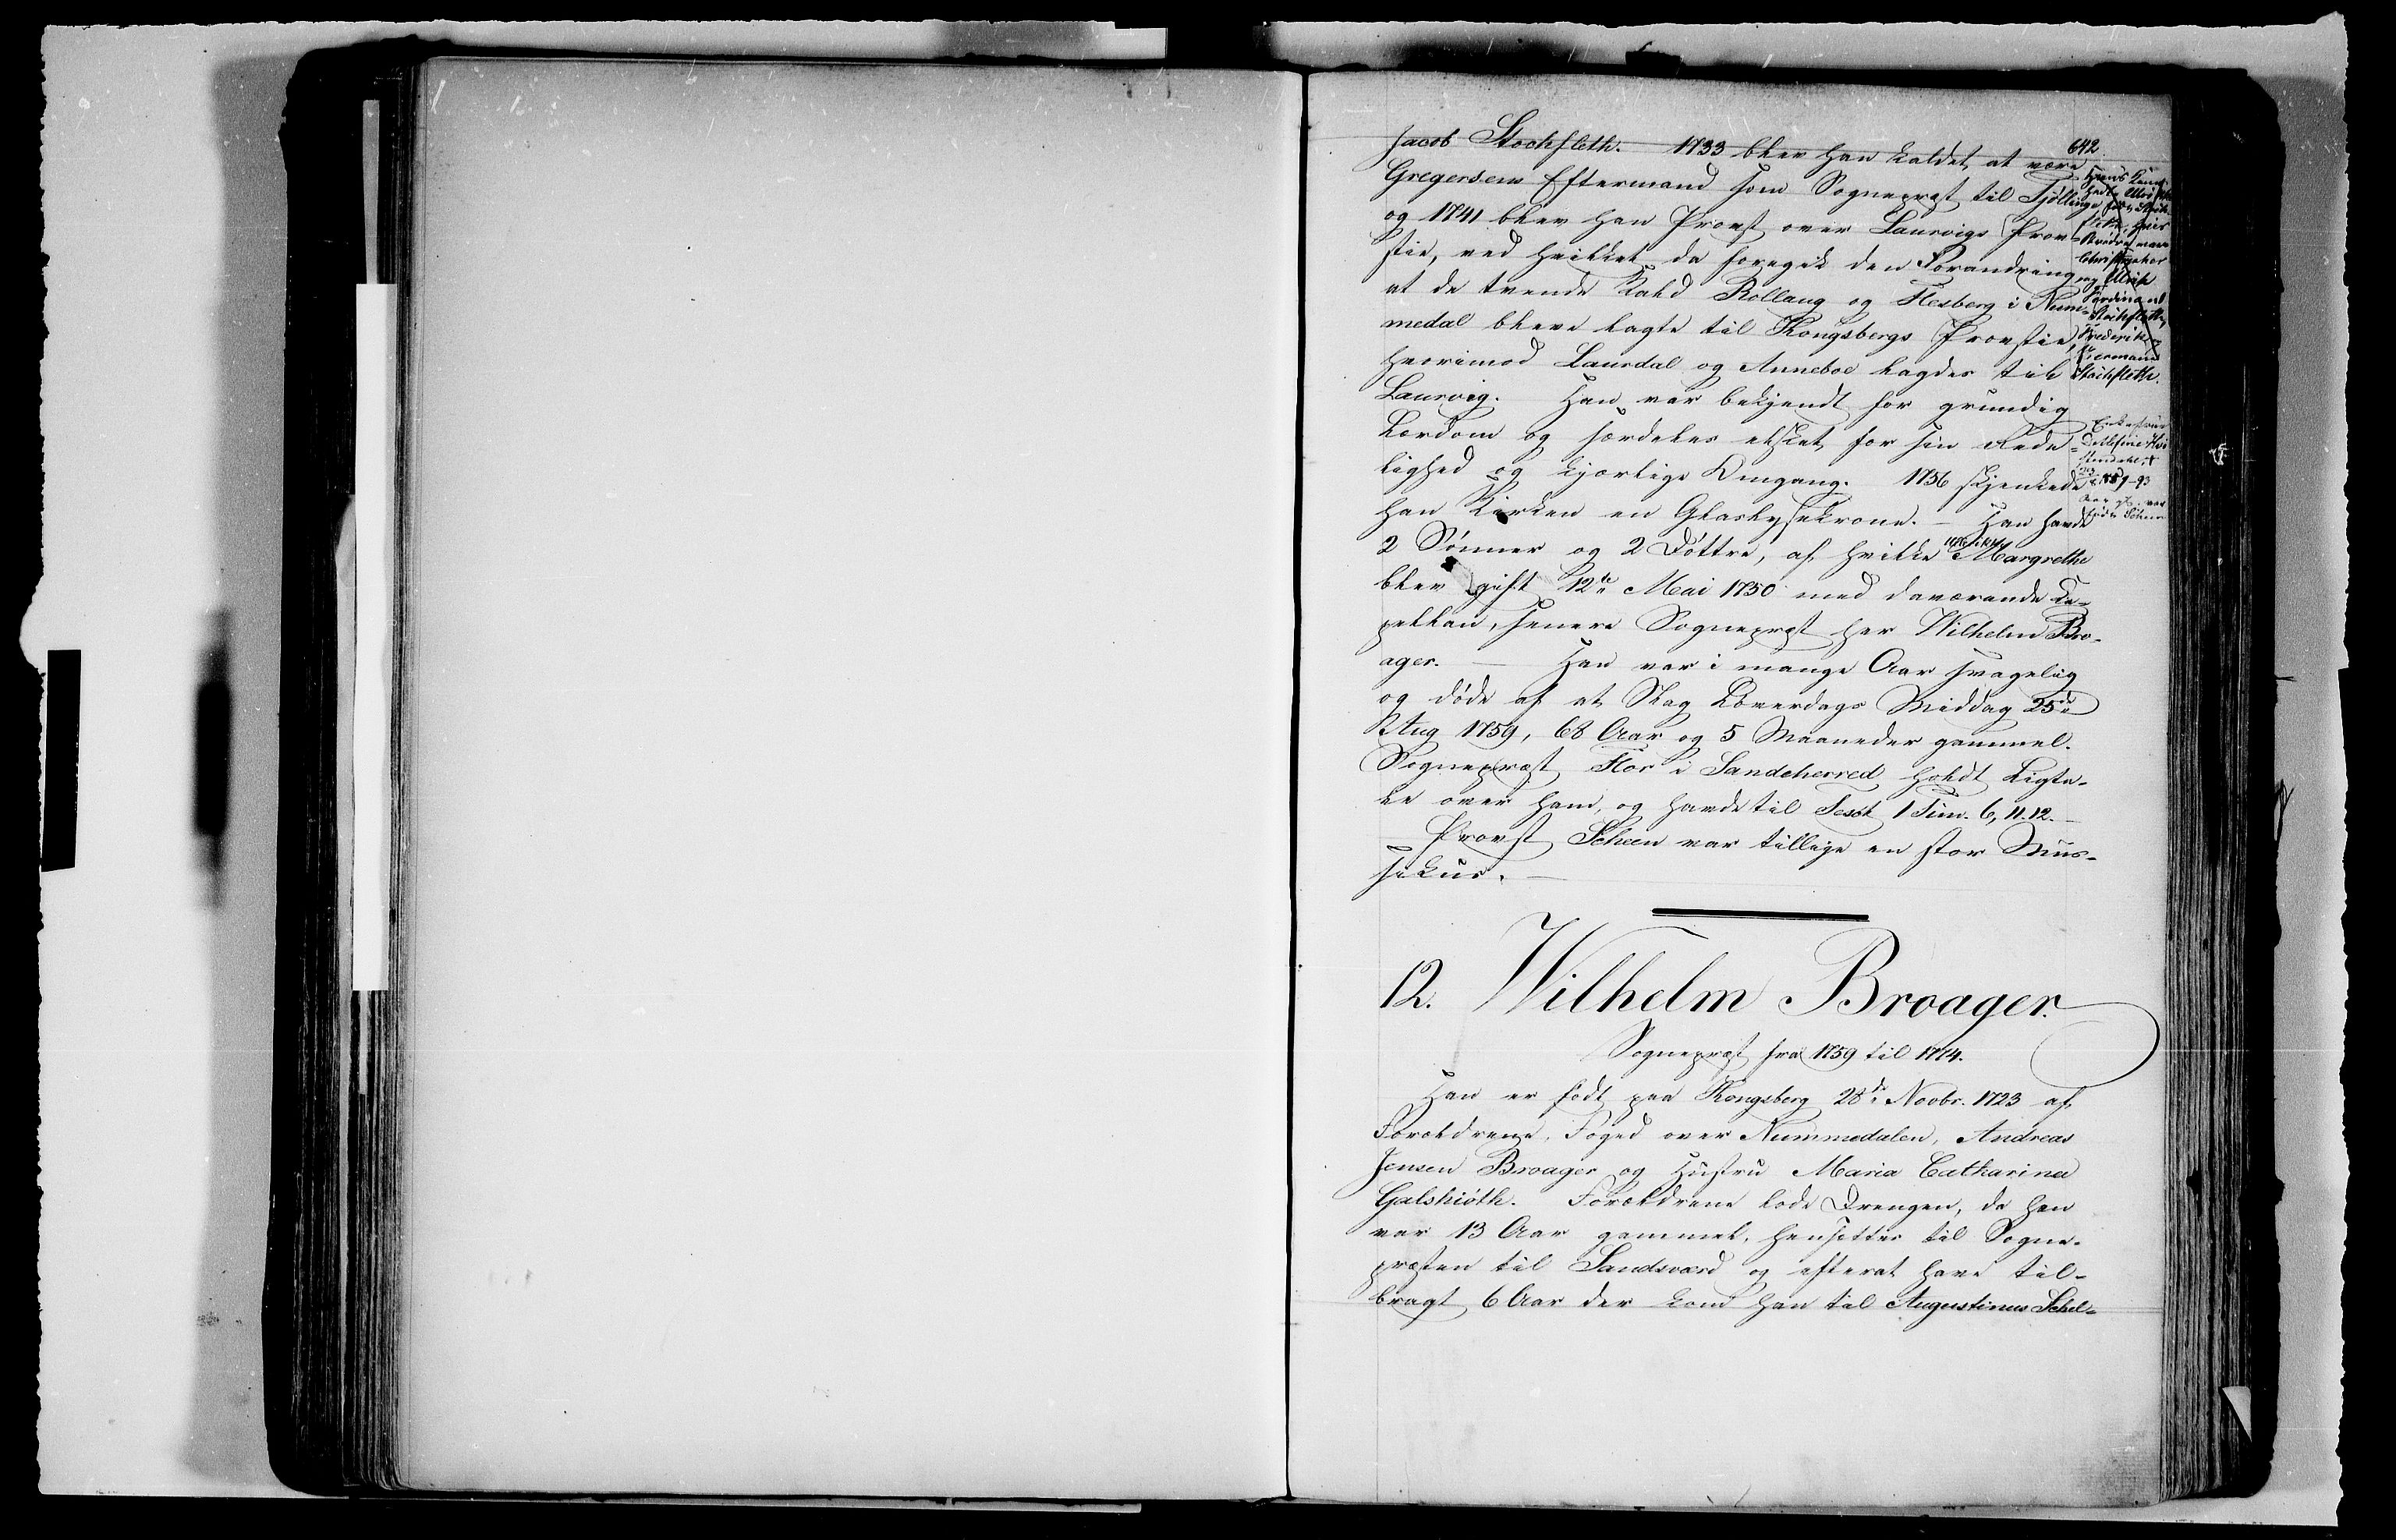 642
Jacob Stochfleth. 1733 blev han kaldet at være
Gregersens Eftermand som Sognepræst til Tjøllinge
og 1741 blev han Provst over Laurvigs Prov-
stie, ved hvilket da foregik den Forandring
at de tvende Kald Rollaug og Flesberg i Num-
medal bleve lagte til Kongsbergs Provstie,
hvorimod Laurdal og Anneboe lagdes til
Laurvig. Han var bekjendt for grundig
Lærdom og særdeles elsket for sin Rede-
lighed og kjærlige Omgang. 1756 skjenkede
han Kirken en Glaslysekrone. – Han havde
2 Sønner og 2 Døttre, af hvilke Margrethe
blev gift 12te Mai 1750 med daværende Ca-
pellan, senere Sognepræst her Wilhelm Bro-
ager. — Han var i mange Aar svagelig
og døde af et Slag Løverdags Middag 25de
Aug 1759, 68 Aar og 5 Maaneder gammel.
Sognepræst Flor i Sandeherred holdt Ligta-
le over ham, og havde til Text 1 Tim. 6, 11.12. —
Provst Scheen var tillige en stor Mus-
sikus. —
Hans Kone
hvis
Brødre vare
Christopher
og Ulrik
Ferdinand
Stochfleth,
Frederik
Biermann
Stochfleth.
12. Wilhelm Broager.
Sognepræst fra 1759 til 1774.
Han er født paa Kongsberg 28de Novbr. 1723 af
Forældrene, Foged over Nummedalen, Andreas
Jensen Broager og Hustru Maria Catharina
Galskiøth. Forældrene lode Drengen, da han
var 13 Aar gammel, hensættes til Sogne-
præsten til Sandsværd og efterat have til-
bragt 6 Aar der kom han til Augustinus Schel-